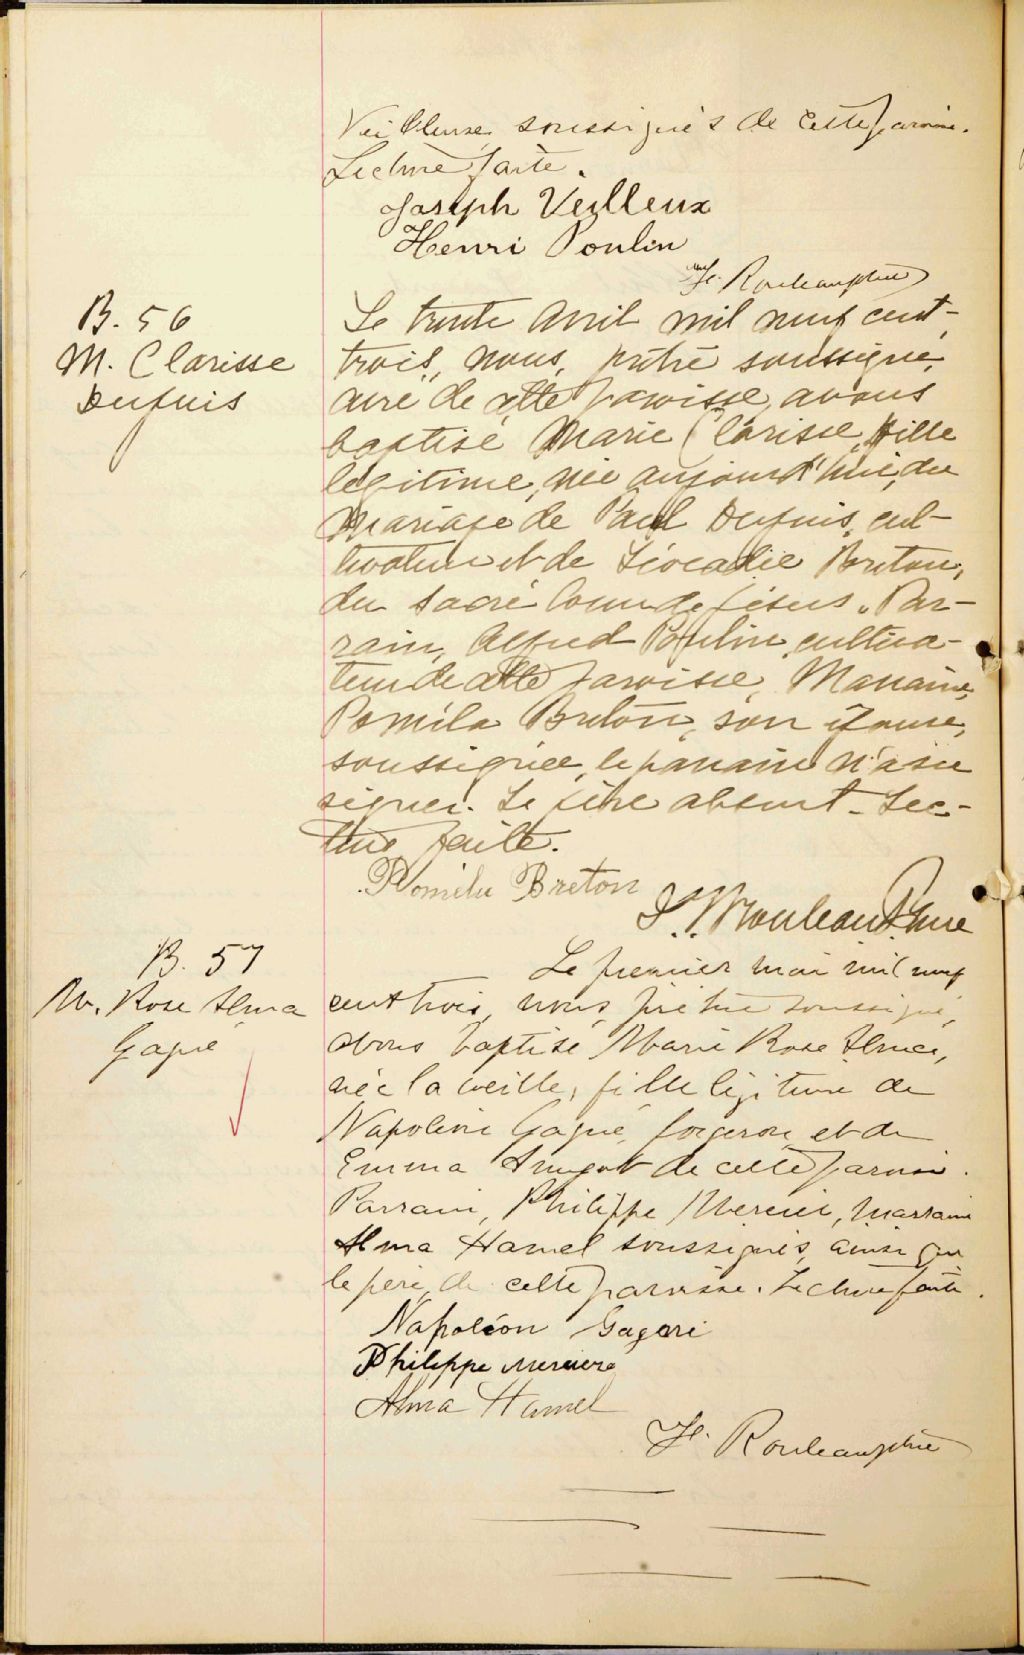 Veilleux, soussignés de cette paroisse.
Lecture faite.
Joseph Veilleux
Henri Poulin
Rouleau, ptre
B. 56
M. Clarisse
Dupuis
Le trente Avril mil neuf cent-
trois, nous, prêtre soussigné,
curé de cette paroisse, avons
baptisé Marie Clarisse, fille
légitime, née aujourd'hui, du
mariage de Paul Dupuis, cul-
tivateur et de Léocadie Breton,
du Sacré Coeur de Jésus. Par-
rain, Alfred Poulin, cultiva-
teur de cette paroisse, Marraine,
Romila Breton, son épouse,
soussignée, le parrain n'a su
signer. Le père absent. Lec-
ture faite.
Romila Breton
Rouleau Ptre
B. 57
M. Rose Alma
Gagné
Le premier mai mil neuf
cent trois, nous, prêtre soussigné,
avons baptisé Marie Rose Alma,
née la veille, fille légitime de
Napoléon Gagné, forgeron, et de
Emma de cette paroisse.
Parrain, Philippe Mercier, marraine
Alma Hamel soussignés, ainsi que
le père, de cette paroisse. Lecture faite.
Napoléon
Philippe
Alma Hamel
Rouleau, ptre